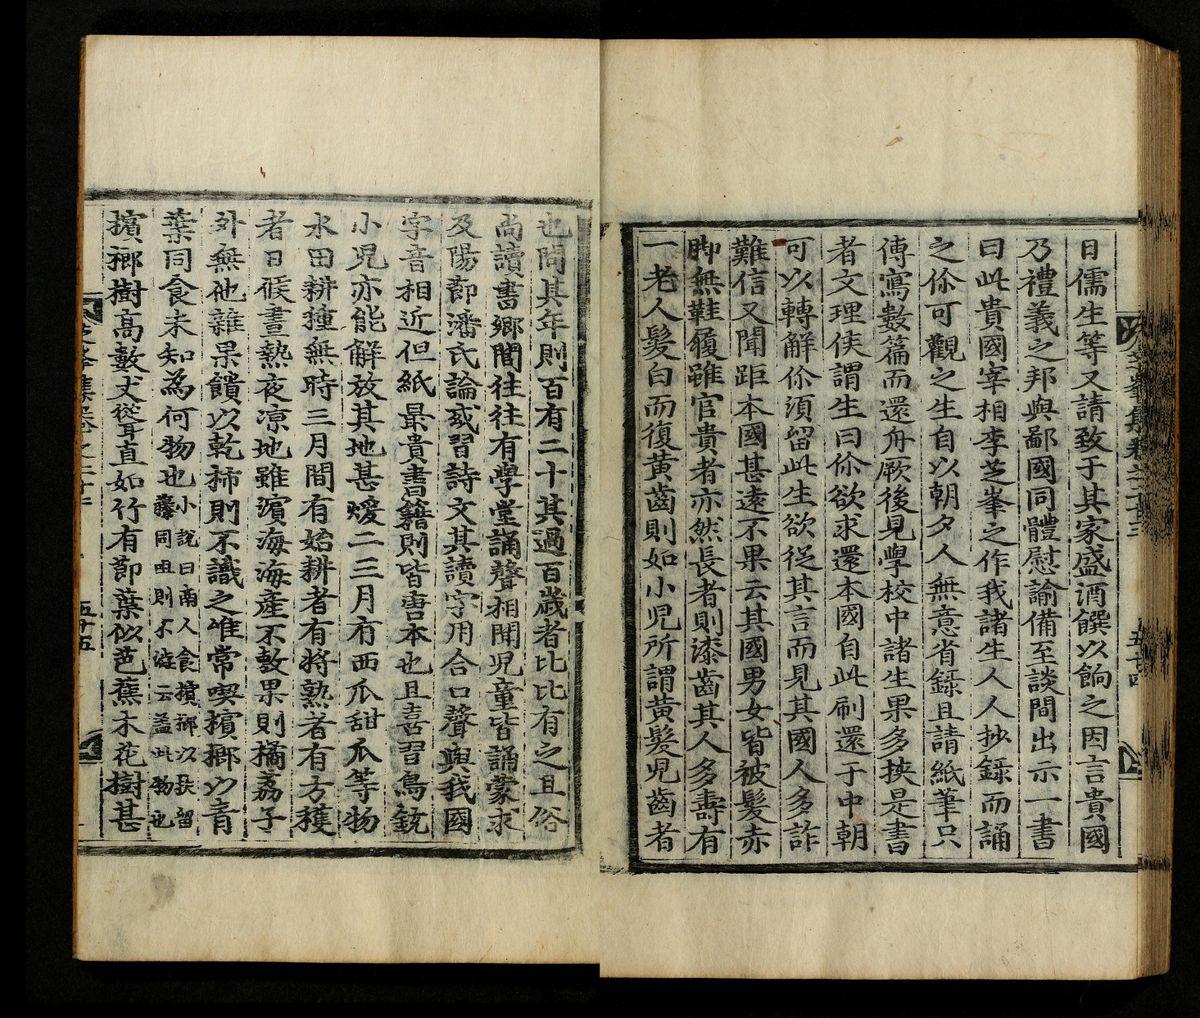 日儒生等又請致于其家盛酒饌以餉之因言貴國
乃禮義之邦與鄙國同體慰諭備至談間出示一書
曰此貴國宰相李芝峯之作我諸生人人抄錄而誦
之你可觀之生自以朝夕人無意省錄且請紙筆只
傳寫數篇而還舟厥後見學校中諸生果多挾是書
者文理侯謂生曰你欲求還本國自此刷還于中朝
可以轉解你須留此生欲從其言而見其國人多詐
難信又聞距本國甚遠不果云其國男女皆被髮赤
脚無鞋履雖官貴者亦然長者則漆齒其人多壽有
一老人髮白而復黃齒則如小兒所謂黃髮兒齒者
也問其年則百有二十其過百歲者比比有之且俗
尚讀書鄉閭往往有學堂誦聲相聞兒童皆誦蒙求
及陽節潘氏論或習詩文其讀字用合口聲與我國
字音相近但紙最貴書籍則皆唐本也且喜習鳥銃
小兒亦能解放其地甚煖二三月有西瓜甜瓜等物
水田耕種無時三月間有始耕者有將熟者有方穫
者日候晝熱夜凉地雖濱海海產不敷果則橘荔子
外無他雜果饋以乾柿則不識之唯常喫檳榔以青
葉同食未知為何物也小說曰南人食檳榔以扶留
藤同咀則不澁云蓋此物也
檳榔樹高數丈聳直如竹有節葉似芭蕉木花樹甚
芝峯集卷之二十三
五十四
五十五